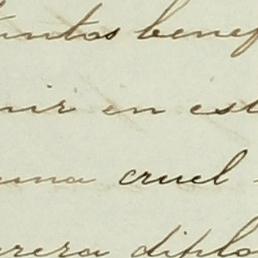 untos benef
nir en est
una cruel
rrera diplo